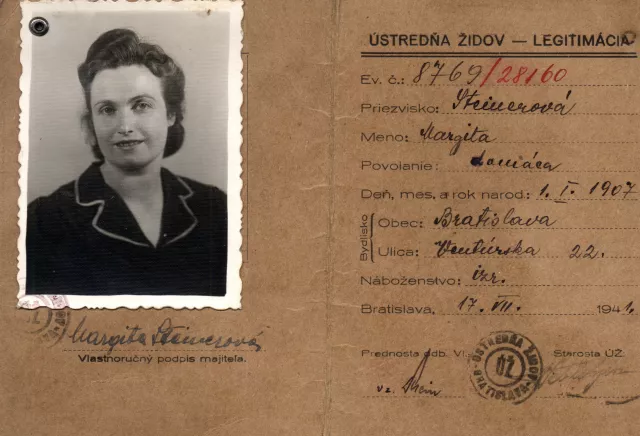 Margita Steinerová
Vlastnoručný podpis majiteľa.
ÚSTREDŇA ŽIDOV — LEGITIMÁCIA
Ev. č.: 8769/28160
Priezvisko: Steinerová
Meno: Margita
Povolanie: domáca
Deň, mes. a rok narod: 1. I. 1907
Bydlisko
Obec: Bratislava
Ulica: Ventúrska 22.
Náboženstvo: izr.
Bratislava, 17. VII. 1941.
Prednosta odb. VI. Starosta ÚŽ:
ÚSTREDŇA ŽIDOV
ÚŽ
BRATISLAVA